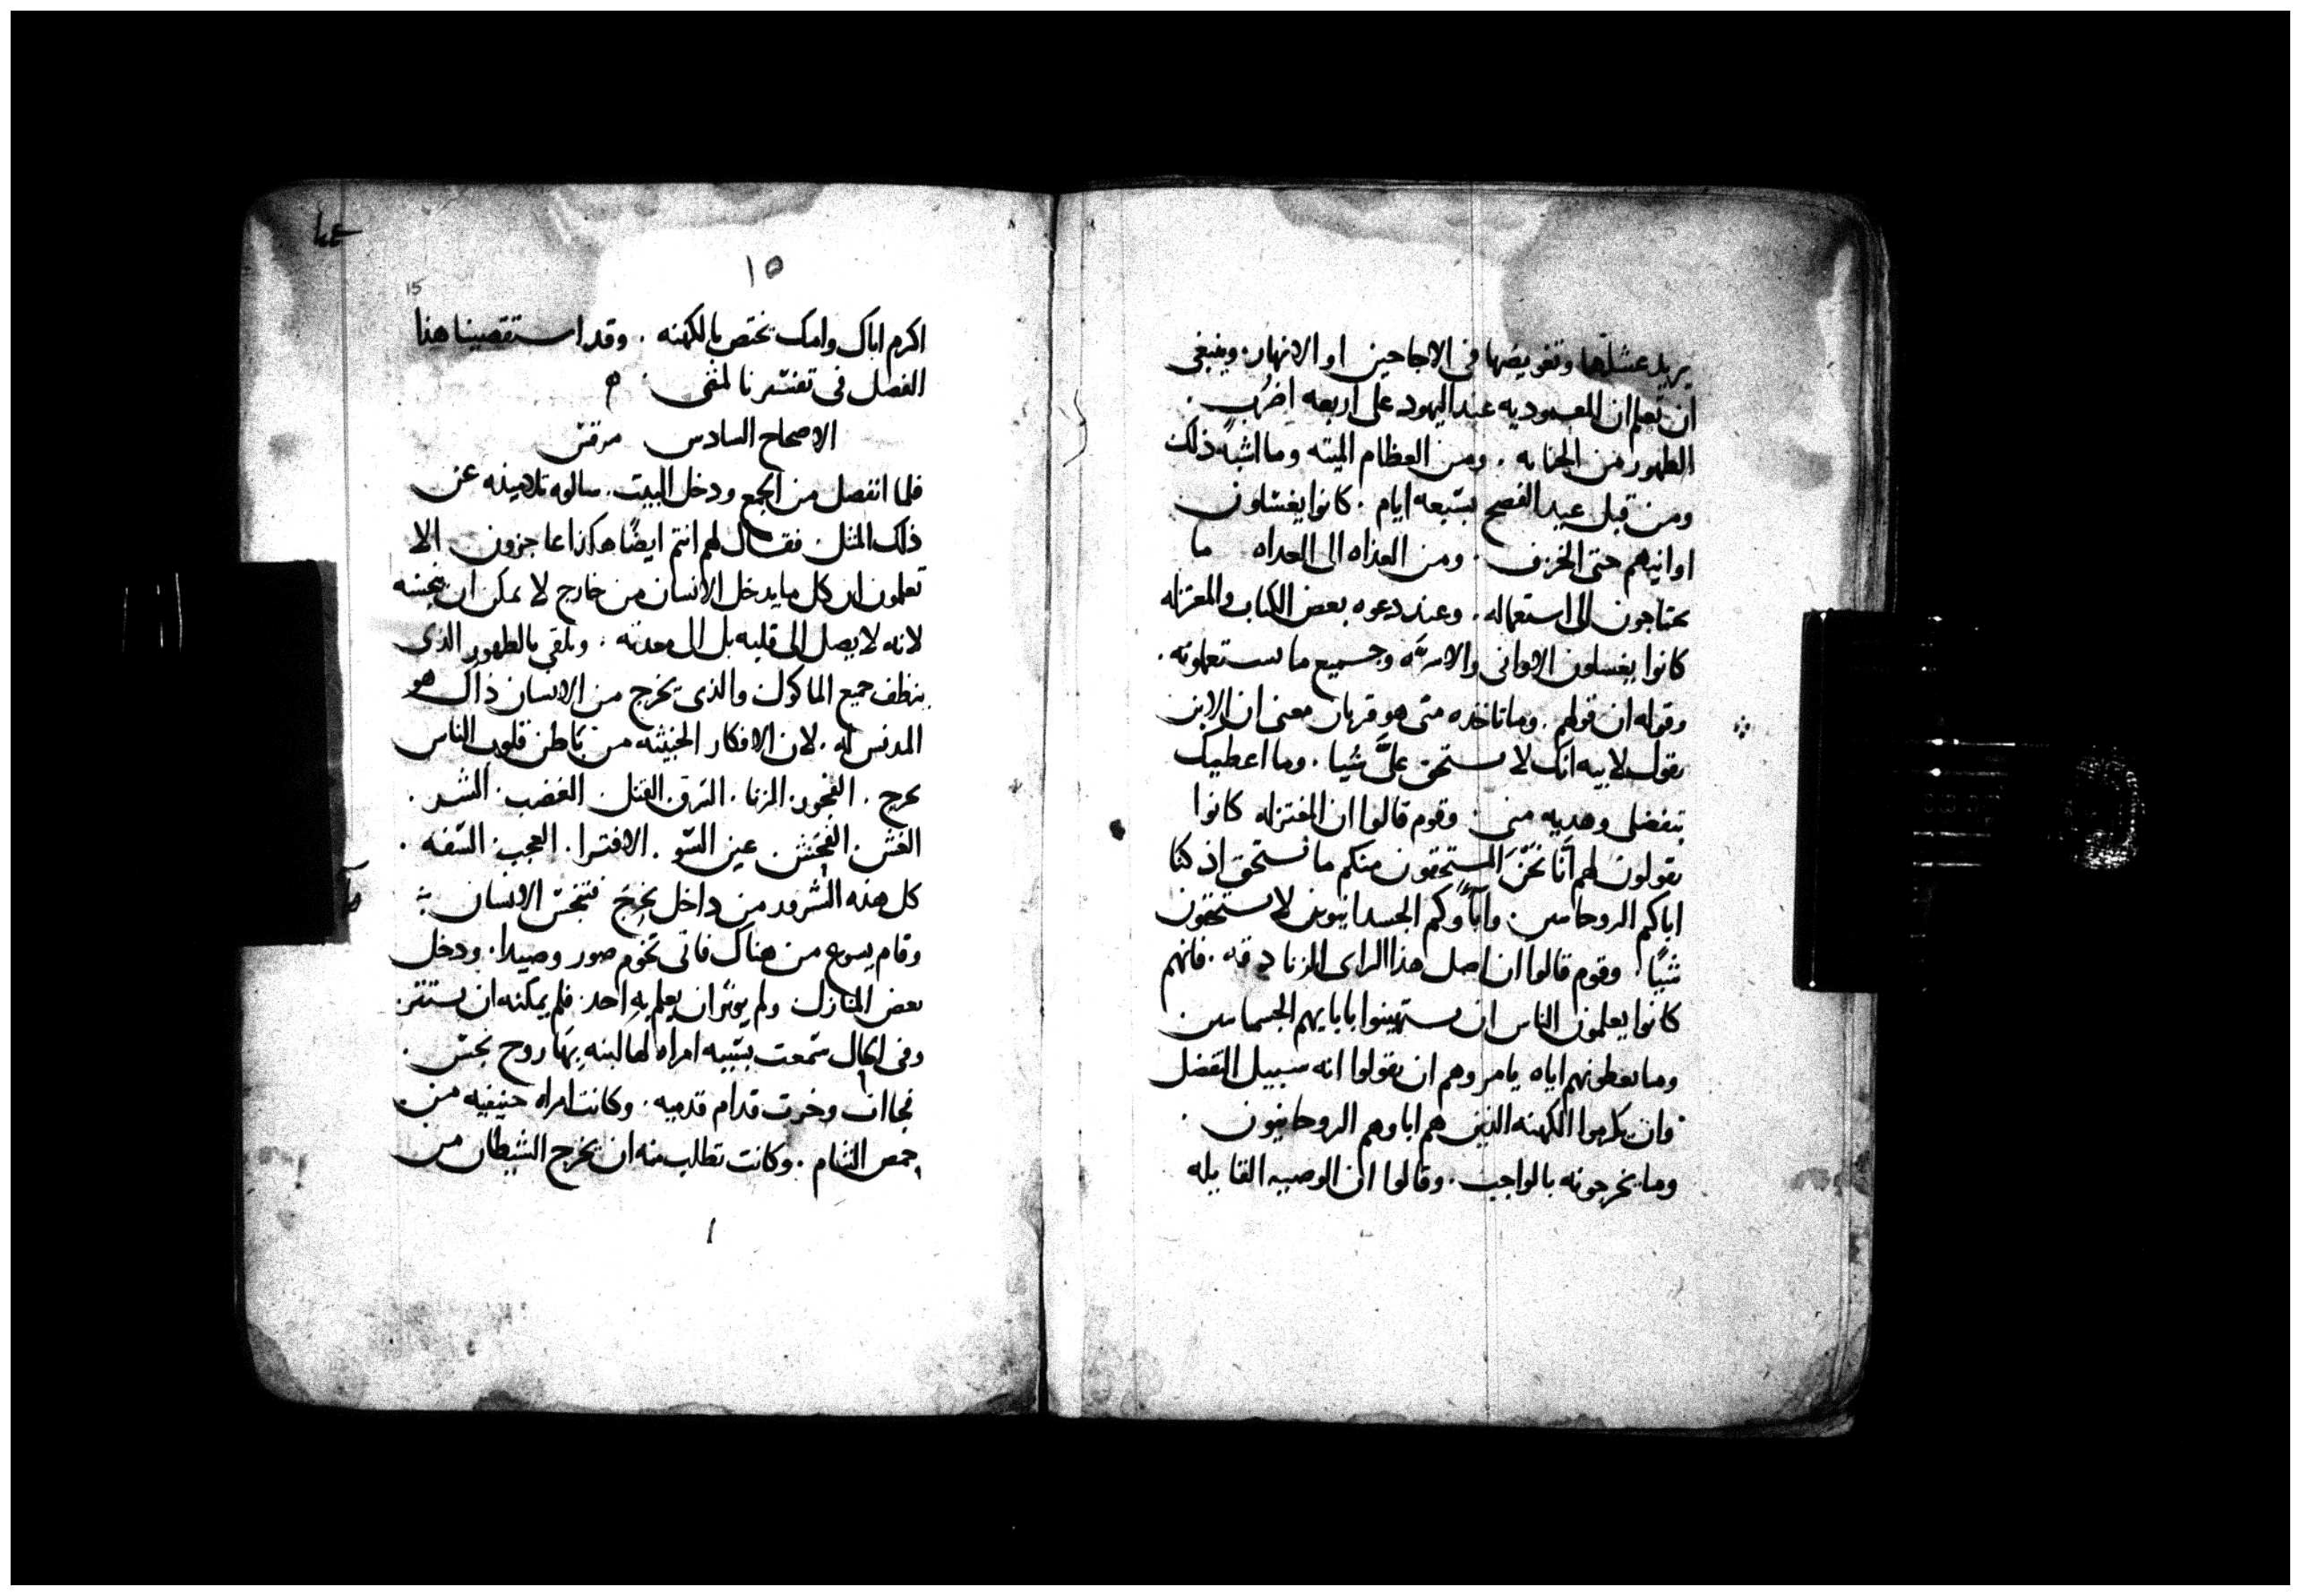 يريد عشلها وتغويضها في الاجاجين او الانهار. وينبغي
ان تعلم ان المعموديه عند اليهود على اربعه اضرب.
الطهور من الجنابه. ومن العظام الميته وما اشبه ذلك
ومن قبل عيد الفصح بسبعه ايام. كانوا يغسلون
اوانيهم حتى الخزف. ومن الغداه الى الغداه ما
يحتاجون الى استعماله. وعند دعوه بعض الكتاب والمعتزله
كانوا يغسلون الاواني والاسره وجميع ما يستعملونه.
وقوله ان قولهم. وما تاخذه منى هو قربان معنى ان الابن
يقول لابيه انك لا تستحق عليَّ شيا. وما اعطيك
بتفضلى وهديه منى. وقوم قالوا ان المعتزله كانوا
يقولون لهم انَّا نحن المستحقون منكم ما نستحق اذ كنا
اباكم الروحانيين. واباؤكم الجسدانيون لا يستحقون
شيًا. وقوم قالوا ان اصل هذا الراى الزنادقه. فانهم
كانوا يعلمون الناس ان يستهينوا بابايهم الجسمانيين
وما يعطونهم اياه يامروهم ان يقولوا انه سبيل التفضل
وان يكرموا الكهنه الذين هم اباوهم الروحانيون.
وما يخرجونه بالواجب. وقالوا ان الوصيه القايله
١٥
15
اكرم اباك وامك تختص بالكهنه. وقد استقصينا هذا
الفصل في تفسيرنا لمتى. ه
الاصحاح السادس مرقس
فلما انفصل من الجمع ودخل البيت. سالوه تلاميذه عن
ذلك المثل. فقال لهم انتم ايضًا هكذا عاجزون الا
تعلمون ان كل ما يدخل الانسان من خارج لا يمكن ان ينجسه
لانه لا يصل الى قلبه بل الى معدته. وتلقى بالطهور الذى
ينظف جميع الماكول والذى يخرج من الانسان ذاك هو
المدنس له. لان الافكار الخبيثه من باطن قلوب الناس
تخرج. الفجور. الزنا. السرق. القتل. الغضب. الشر.
الغش. الفحش. عين السو. الافترا. العجب. السفه.
كل هذه الشرور من داخل تخرج فتنجس الانسان
وقام يسوع من هناك فاتى تخوم صور وصيدا. ودخل
بعض المنازل ولم يوثر ان يعلم به احد. فلم يمكنه ان يستتر.
وفي الحال سمعت بسببه امراه لها ابنه بها روح نجس.
فجات وخرت قدام قدميه. وكانت امراه حنيفيه من
حمص الشام. وكانت تطلب منه ان يخرج الشيطان من